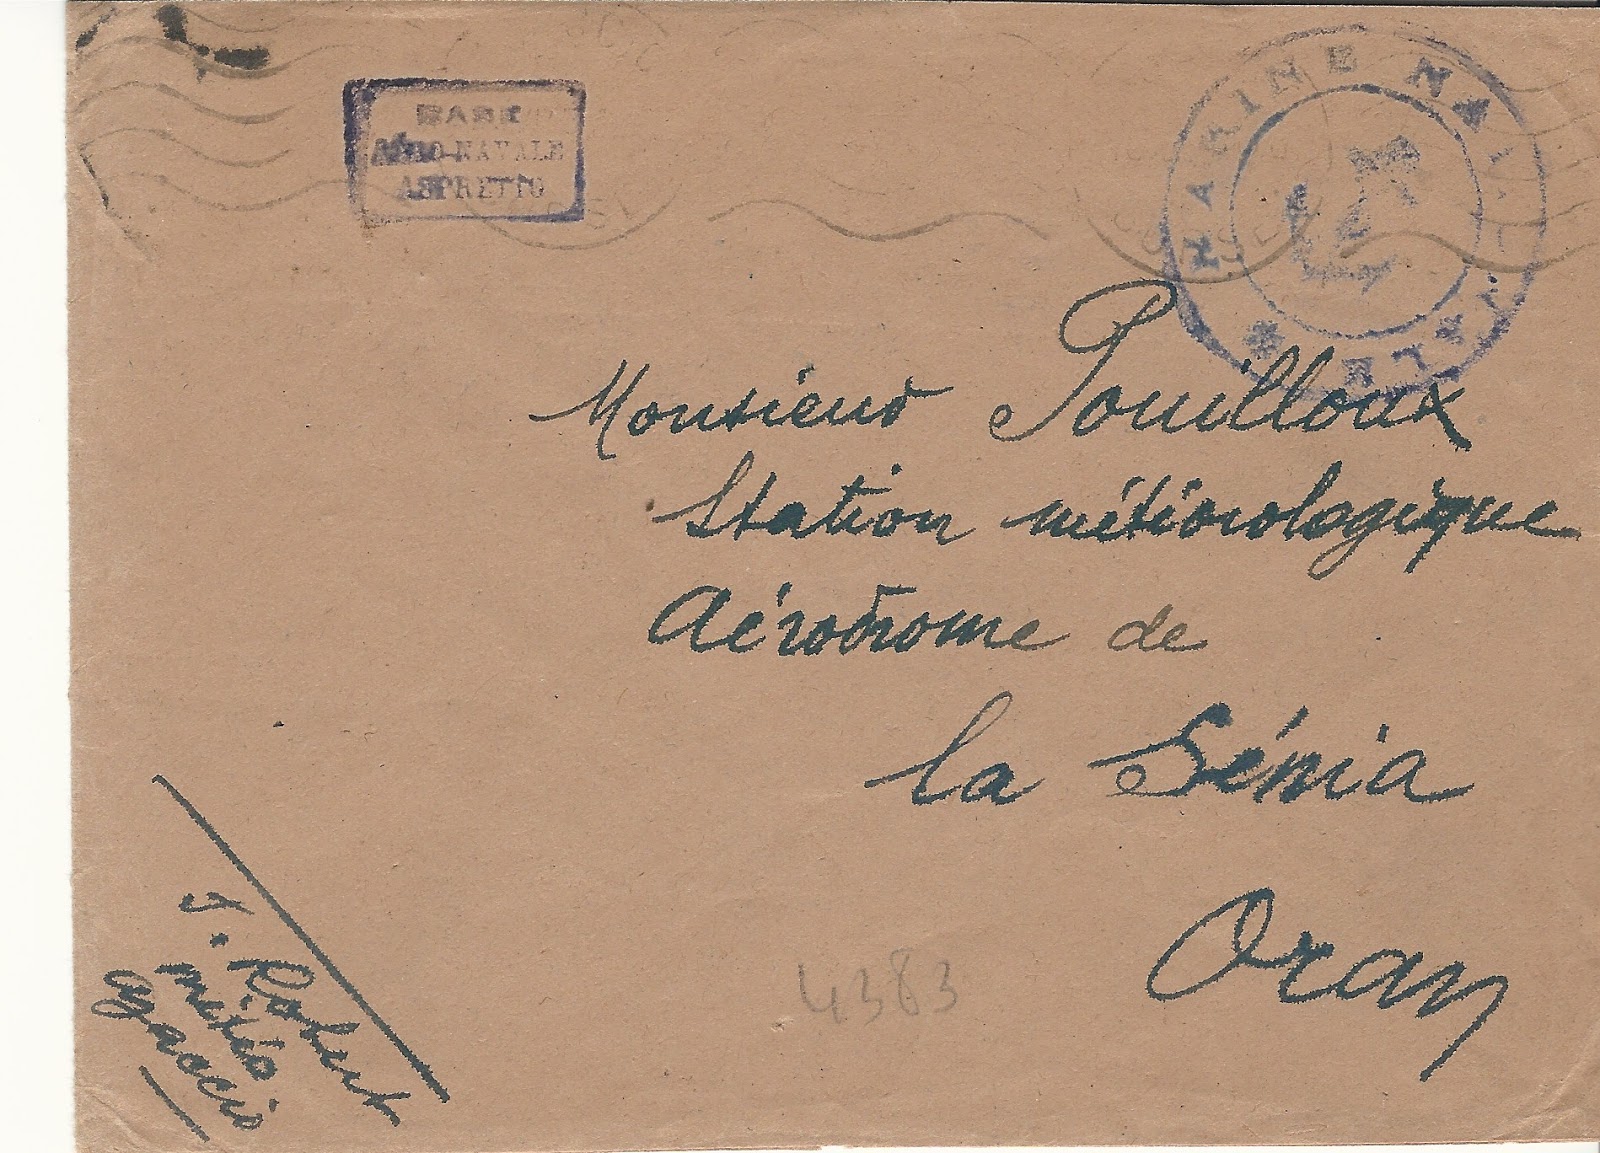 BASE
AÉRO-NAVALE
ASPRETTO
MARINE NATIONALE
Monsieur Pouilloux
Station météorologique
Aérodrome de
la Sénia
Oran
4383
J. Robert
météo
ajaccio